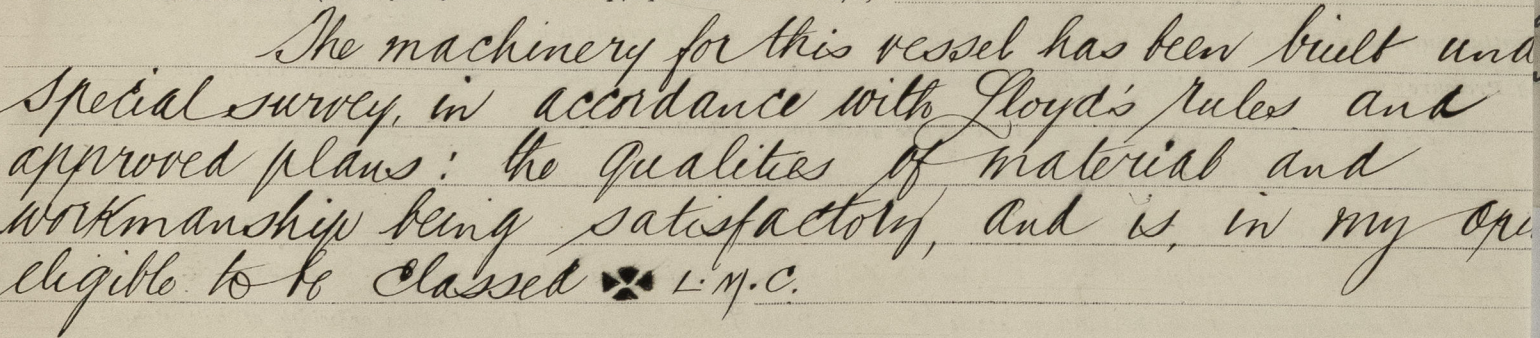 The machinery for this vessel has been built und
special survey, in accordance with Lloyd's rules and
approved plans: the qualities of material and
workmanship being satisfactory, and is, in my opi
eligible to be classed ✠ L.M.C.